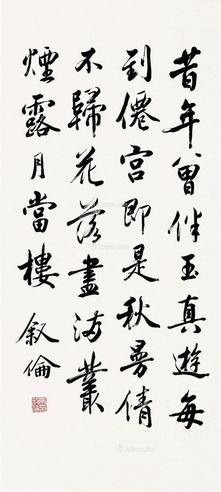 昔年曾伴玉真遊每
到僊宮即是秋曼倩
不歸花落盡滿叢
煙露月當樓
敘倫